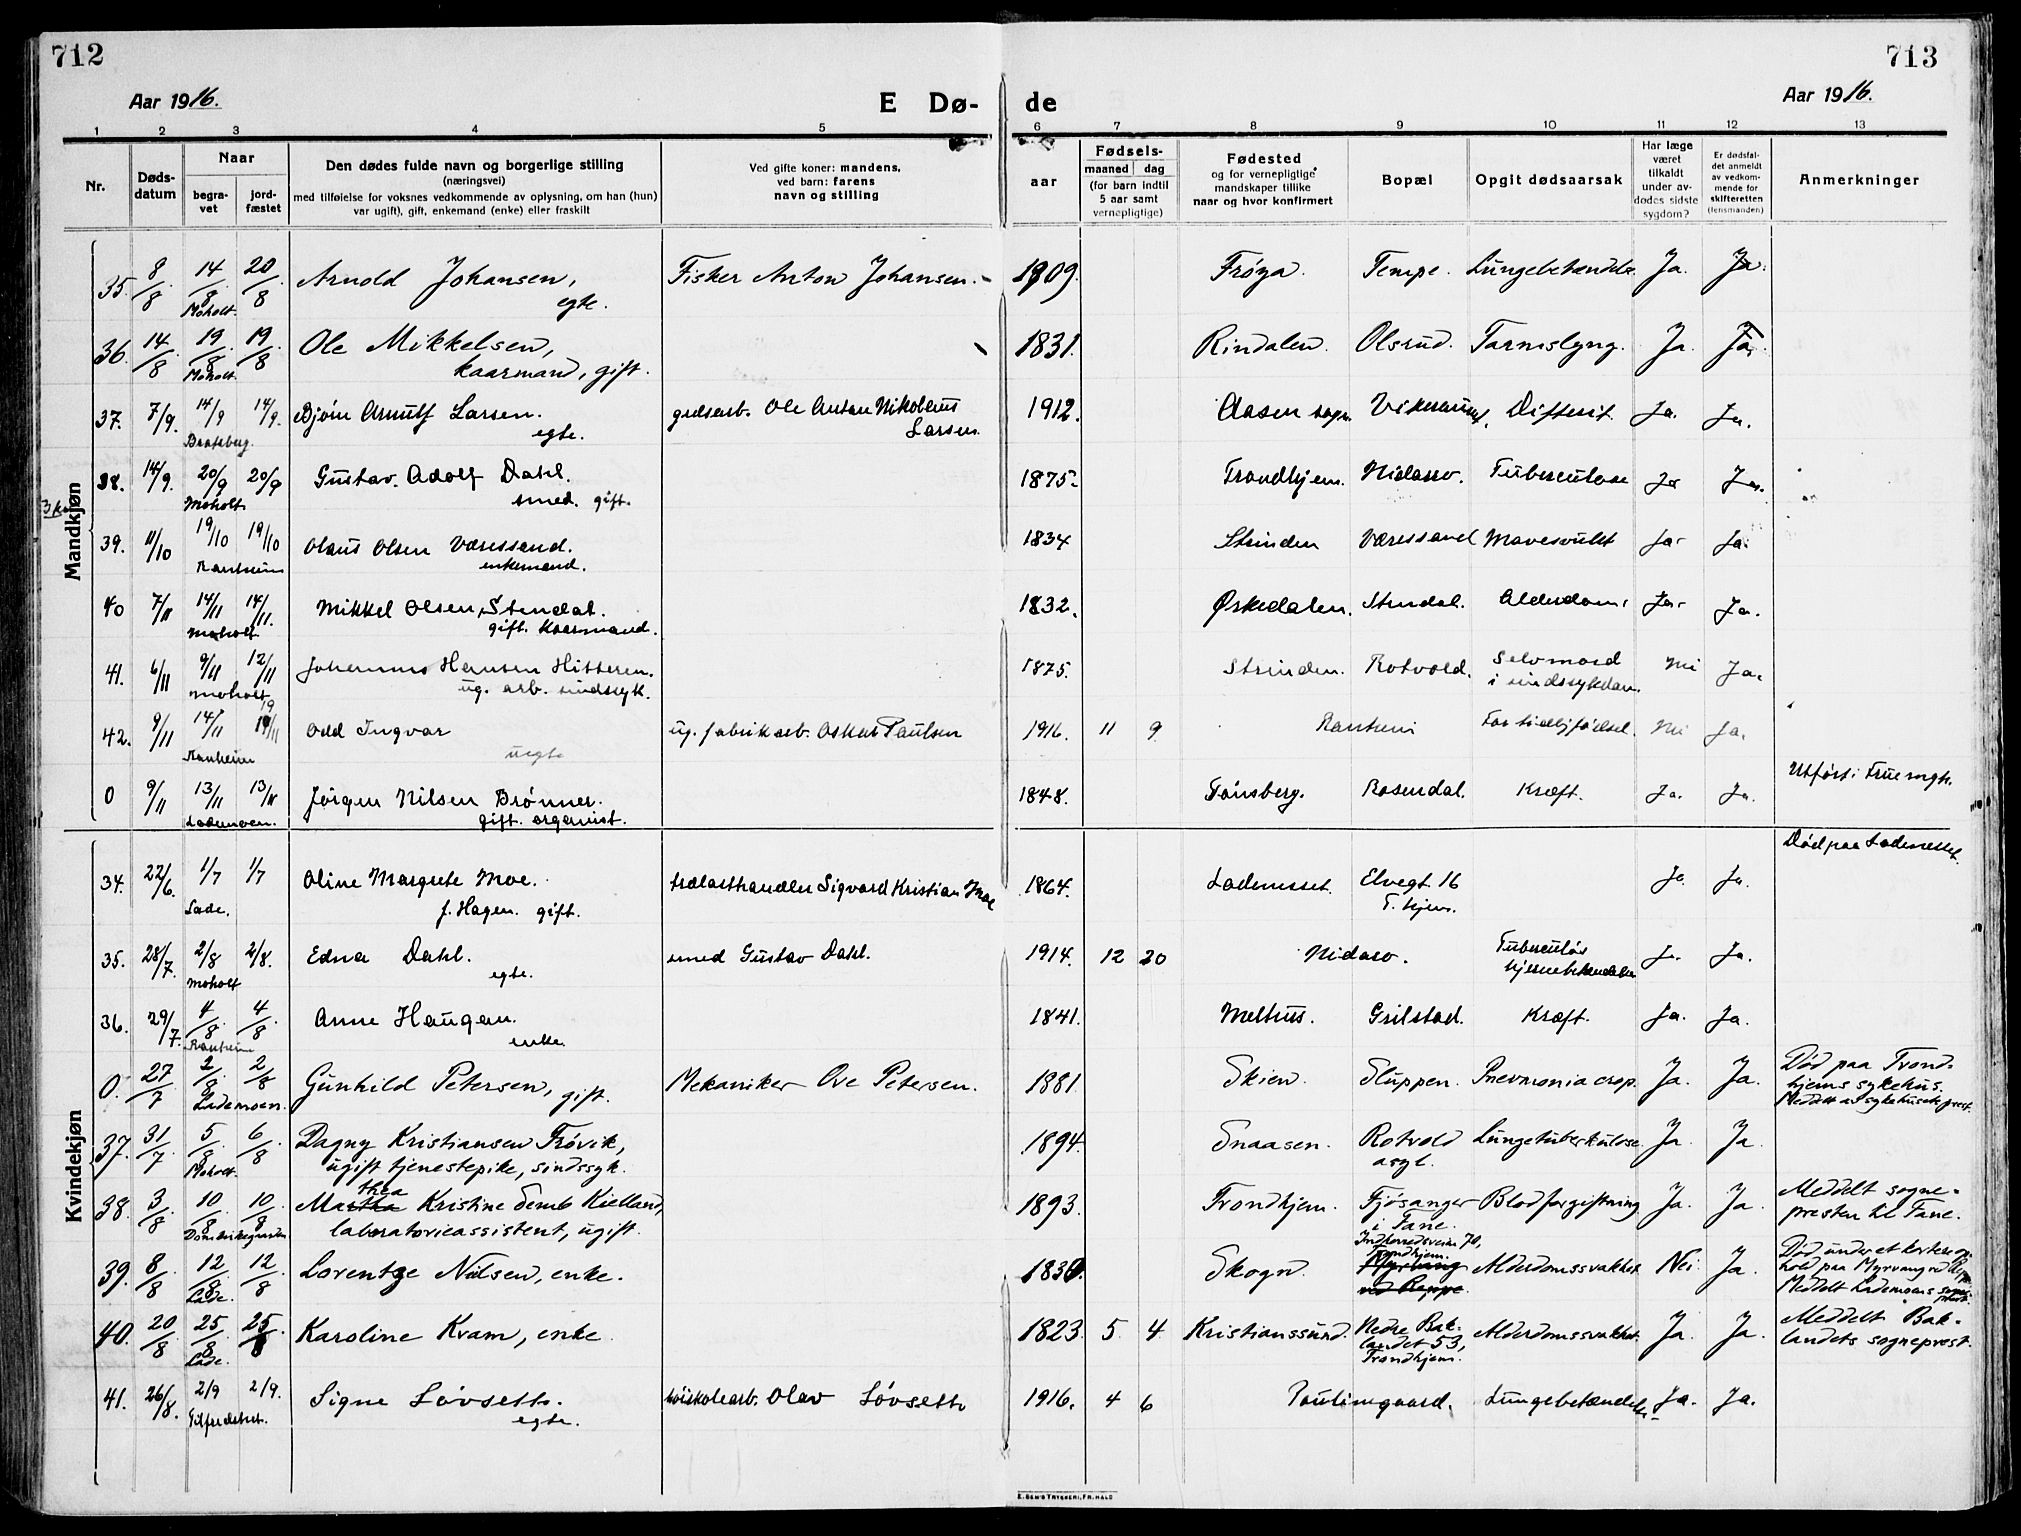 712
713
Aar 1916.
E Dø-
de
Aar 1916.
1 2 3 4 5 6 7 8 9 10 11 12 13
Nr.
Døds-
datum
Naar
begra-
vet
jord-
fæstet
Den dødes fulde navn og borgerlige stilling
(næringsvei)
med tilføielse for voksnes vedkommende av oplysning, om han (hun)
var ugift), gift, enkemand (enke) eller fraskilt
Ved gifte koner: mandens,
ved barn: farens
navn og stilling
aar
Fødsels-
maaned dag
(for barn indtil
5 aar samt
vernepligtige)
Fødested
og for vernepligtige
mandskaper tillike
naar og hvor konfirmert
Bopæl
Opgit dødsaarsak
Har læge
været
tilkaldt
under av-
dødes sidste
sygdom?
Er dødsfal-
det anmeldt
av vedkom-
mende for
skifteretten
(lensmanden)
Anmerkninger
Mandkjøn
35. 8/8 14/8 20/8 Arnold Johansen, Fisker Anton Johansen. 1909. Frøya. Tempe. Lungebetændelse Ja. Ja.
Moholt. egte.
36. 14/8 19/8 19/8 Ole Mikkelsen, 1831. Rindalen. Olsrud. Tarmslyng. Ja. Ja.
Moholt. kaarmand, gift.
37. 7/9. 14/9 14/9. Bjørn Arnulf Larsen. gudsarb. Ole Anton Nikolaus 1912. Aasen sogn. Diftesit. Ja. Ja.
Bratsberg. egte. Larsen.
38. 14/9. 20/9 20/9 Gustav Adolf Dahl. 1875. Trondhjem. Nidaro. Tuberculose Ja Ja.
Moholt smed. gift.
39. 11/10 19/10 19/10 Olaus Olsen Væressand. 1834 Strinden Væressand Mavesvulst Ja. Ja.
Ranheim enkemand.
40 7/11 14/11 14/11. Mikkel Olsen, Stendal. 1832. Ørkedalen. Stendal. Alderdom. Ja. Ja.
Moholt gift. Kaarmand.
41. 6/11 9/11 12/11 Johannes Hansen Hitteren. 1875. Strinden. Rotvold. Selvmord Nei Ja.
Moholt ug. arb. sindssyk. i sindssykdom.
42. 9/11 14/11 19/11 Odd Ingvar ug. fabrikarb. Oskar Paulsen 1916. 11 9 Ranheim For tidlig fødsel. Nei Ja.
Ranheim uegte
0 9/11 13/11 13/11 Jørgen Nilsen Brønner. 1848. Tønsberg. Rosendal. Kræft. Ja. Ja. Utført i Frue sogn.
Lademoen. gift. organist.
Kvindekjøn
Død paa Ladenesset.
34. 22/6. 1/7 1/7 Oline Margrete Moe. trælasthandler Sigvard Kristian Moe 1864. Ladenesset. Elvegt 16 Ja. Ja.
Lade. f. Hagen. gift. T. hjem.
35. 28/7. 2/8 2/8. Edna Dahl. smed Gustav Dahl. 1914. 12 20 Nidaro. Tuberculøs Ja. Ja.
Moholt egte. hjernebetændelse
36. 29/7. 4/8 4/8 Anne Haugan. 1841. Melhus. Grilstad. Kræft. Ja. Ja.
Ranheim enke.
0. 27/7 2/8 2/8 Gunhild Petersen, gift. Mekaniker Ove Petersen. 1881. Skien. Sluppen. Pneumonia crop. Ja. Ja. Død paa Trond-
Lademoen. hjems sykehus.
Meddelt av sykehusets prest.
37. 31/7 5/8 6/8 Dagny Kristiansen Frøvik, 1894. Snaasen. Rotvold Lungetuberkulose. Ja. Ja.
Moholt. ugift tjenestepike, sindssyk. asyl.
38. 3/8 10/8 10/8 Marthea Kristine Semb Kielland, 1893. Trondhjem. Fjøsanger Blodforgiftning Ja. Ja. Meddelt sogne-
Domkirkegaarden laboratorieassistent, ugift. i Fane. presten til Fane.
39. 8/8 12/8 12/8 Lorentze Nilsen, enke. 1830. Skogn. Indherredsveien 70, Trondhjem. Alderdomssvakhet. Nei. Ja. Død under et kortere op-
Lade. Myrvang ved Reppe. hold paa Myrvang ved Reppe
Meddelt Lademoens sogneprest.
40. 20/8 25/8 25/8 Karoline Kvam, enke. 1823. 5. 4. Kristianssund. Nedre Bak- Alderdomssvakhet. Ja. Ja. Meddelt Bak-
Lade. landet 53, landets sogneprest.
Trondhjem.
41. 26/8. 2/9 2/9. Signe Løvseth. Olav Løvseth 1916. 4 6 Paulinegaard. Lungebetændelse Ja. Ja.
Tilfredshet. egte.
E. SEM'S TRYKKERI, FR.HALD